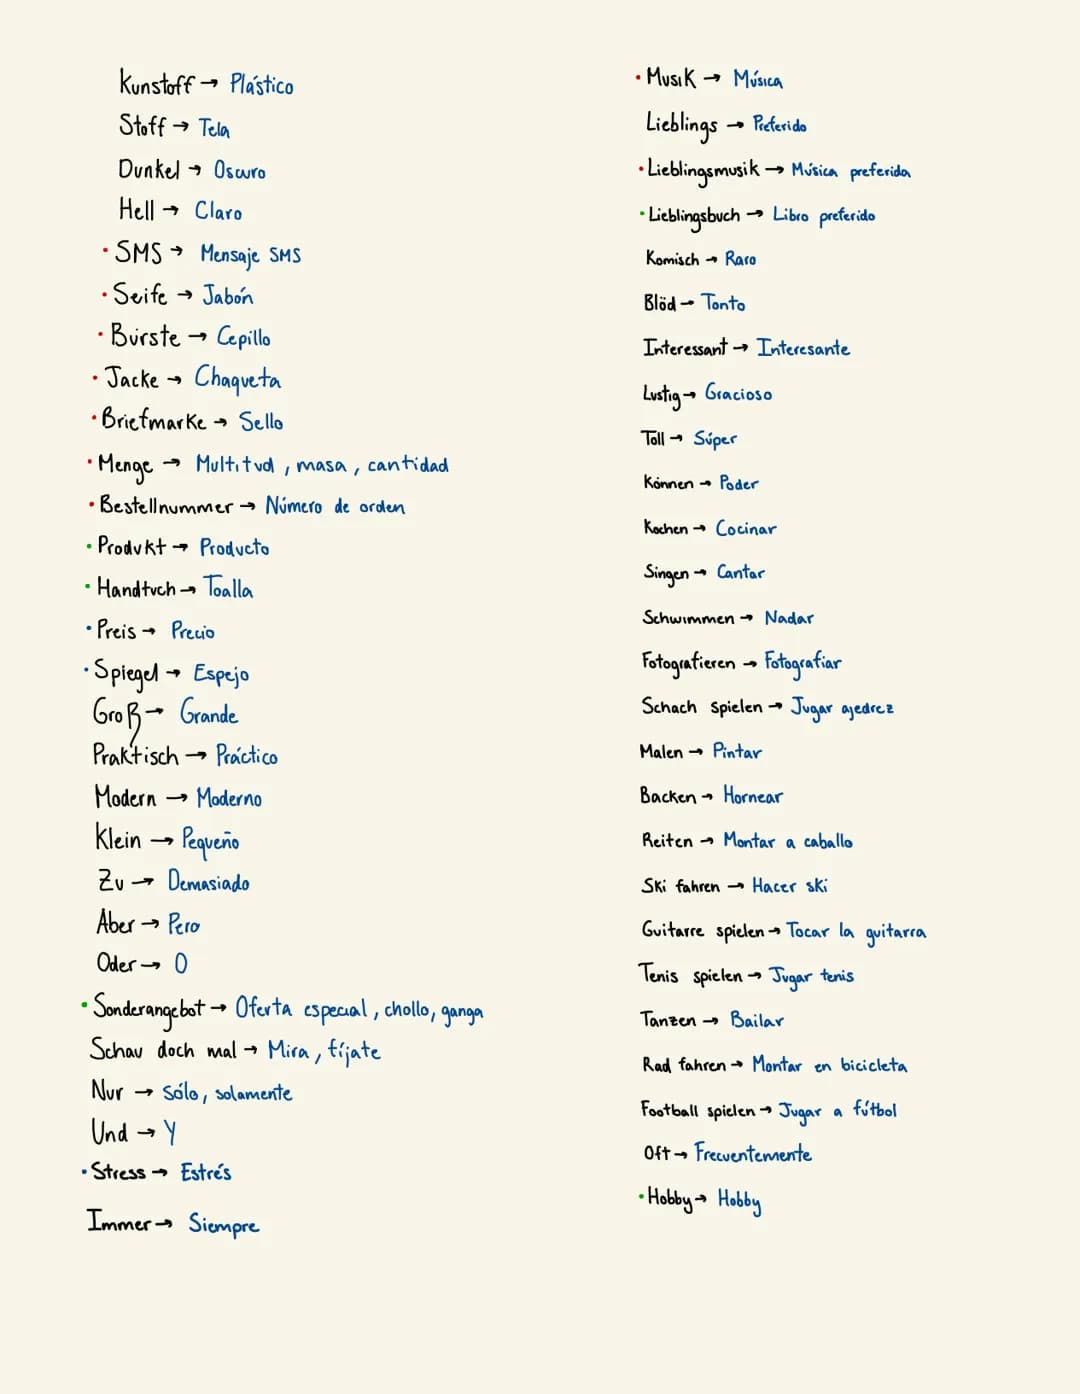 Kunstoff → Plástico
Stoff → Tela
Dunkel → Oscuro
Hell → Claro
• SMS → Mensaje SMS
• Seife → Jabón
• Bürste → Cepillo
• Jacke → Chaqueta
• Briefmarke → Sello
• Menge → Multitud, masa, cantidad
• Bestellnummer → Número de orden
• Produkt → Producto
• Handtuch → Toalla
• Preis → Precio
• Spiegel → Espejo
Groß → Grande
Praktisch → Práctico
Modern → Moderno
Klein → Pequeño
Zu → Demasiado
Aber → Pero
Oder → O
• Sonderangebot → Oferta especial, chollo, ganga
Schau doch mal → Mira, fíjate
Nur → Sólo, solamente
Und → Y
• Stress → Estrés
Immer → Siempre
• Musik → Música
Lieblings → Preferido
• Lieblingsmusik → Música preferida
• Lieblingsbuch → Libro preferido
Komisch → Raro
Blöd → Tonto
Interessant → Interesante
Lustig → Gracioso
Toll → Súper
Können → Poder
Kochen → Cocinar
Singen → Cantar
Schwimmen → Nadar
Fotografieren → Fotografiar
Schach spielen → Jugar ajedrez
Malen → Pintar
Backen → Hornear
Reiten → Montar a caballo
Ski fahren → Hacer ski
Guitarre spielen → Tocar la guitarra
Tenis spielen → Jugar tenis
Tanzen → Bailar
Rad fahren → Montar en bicicleta
Football spielen → Jugar a fútbol
Oft → Frecuentemente
• Hobby → Hobby